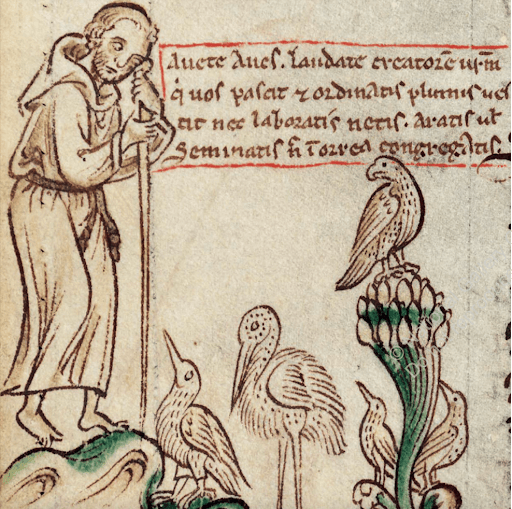 Avete Aues. laudate creatorē ur̄m
q̇ uos pascit ⁊ ordinatis plumis ues
tit nec laboratis netis. Aratis ul̄
Seminatis n̄ ī orrea congregatis.